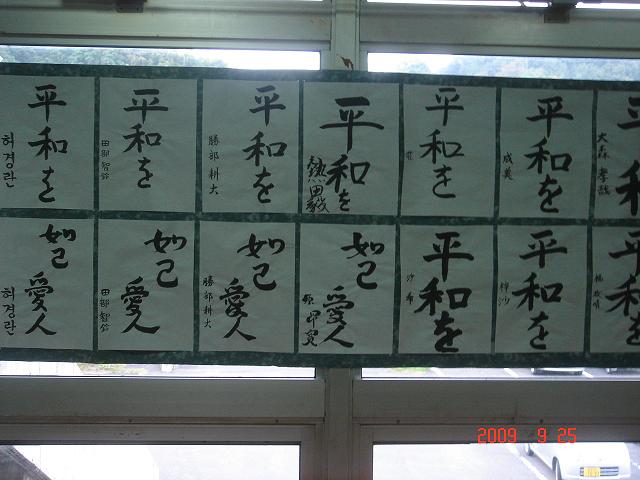 平和を
허경란
平和を
田部智鈴
平和を
勝部耕大
平和を
熱田毅
平和を
平和を
成美
大森
如己愛人
허경란
如己愛人
田部智鈴
如己愛人
勝部耕大
如己愛人
平和を
沙希
平和を
梓沙
2009 9 25